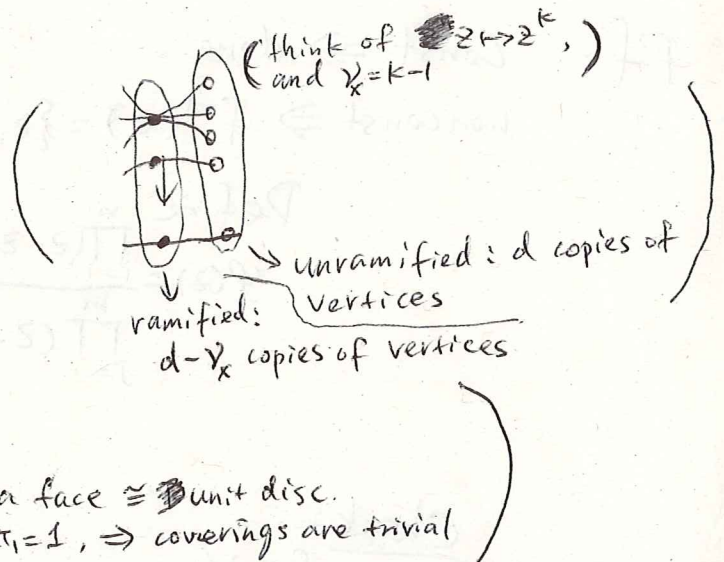 (think of z↦z^k,)
and ν_x = k-1
unramified : d copies of
vertices
ramified :
d-ν_x copies of vertices
a face ≅ unit disc.
π_1=1, ⇒ coverings are trivial
const ⇒
Def